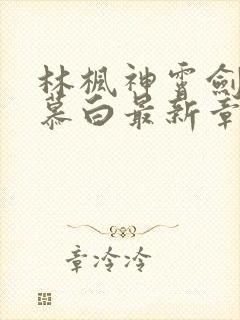 林楓神霄劍
慕白最新章
章冷冷